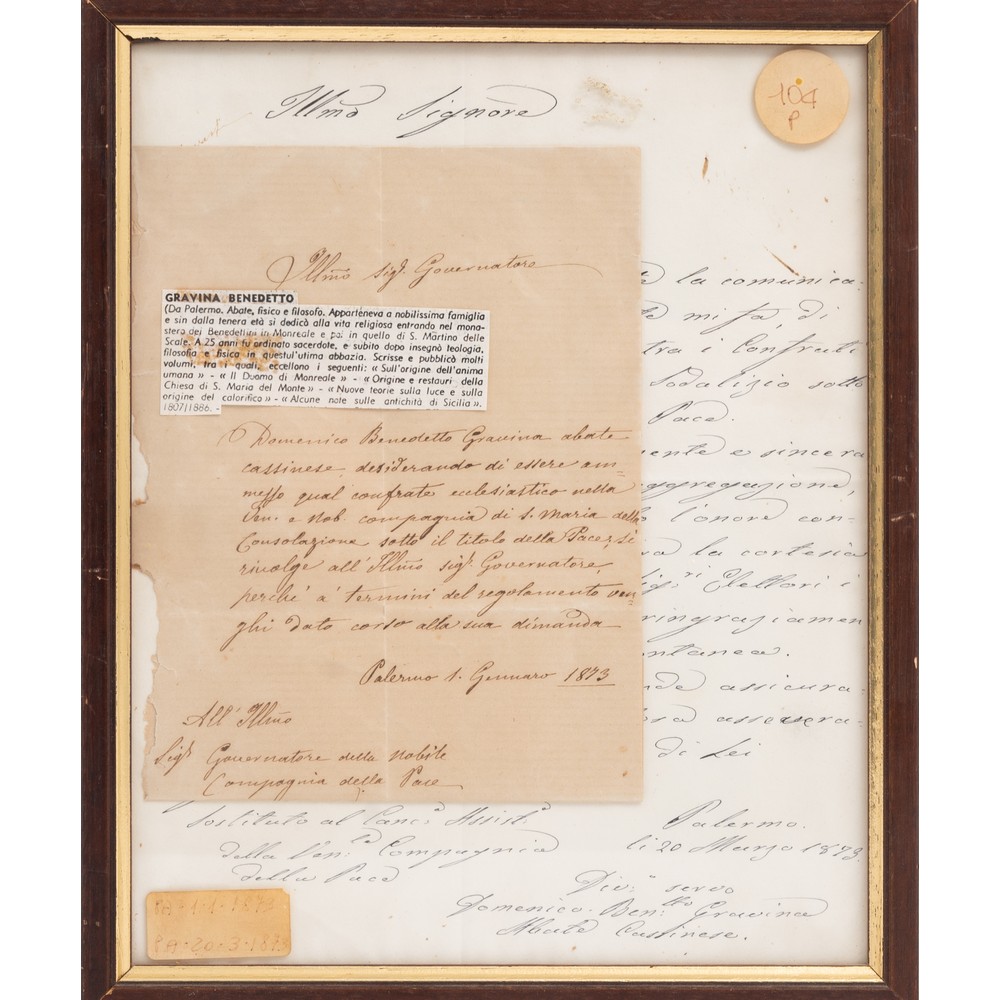 Illmo Signore
104
P
Illmo Sigr. Governatore
GRAVINA BENEDETTO
(Da Palermo. Abate, fisico e filosofo. Apparteneva a nobilissima famiglia
e sin dalla tenera età si dedicò alla vita religiosa entrando nel mona-
stero dei Benedettini in Monreale e poi in quello di S. Martino delle
Scale. A 25 anni fu ordinato sacerdote, e subito dopo insegnò teologia,
filosofia e fisica in questul'utima abbazia. Scrisse e pubblicò molti
volumi, tra i quali, eccellono i seguenti: « Sull'origine dell'anima
umana » - « Il Duomo di Monreale » - « Origine e restauri della
Chiesa di S. Maria del Monte » - « Nuove teorie sulla luce e sulla
origine del calorifico » - « Alcune note sulle antichità di Sicilia ».
1807/1886. -
Domenico Benedetto Gravina abate
cassinese desiderando di essere am-
messo qual confrate ecclesiastico nella
Ven. e Nob. compagnia di S. Maria della
Consolazione sotto il titolo della Pace, si
rivolge all' Illmo Sigr. Governatore,
perchè a' termini del regolamento ven-
ghi dato corso alla sua dimanda
Palermo 1. Gennaro 1873
All' Illmo
Sigr Governatore della Nobile
Compagnia della Pace
la comunica-
mi fa, di
i Confrati
Sodalizio sotto
Pace.
e sincera
aggregazione,
l'onore con-
la cortesia
Sigri Elettori i
ringraziamen
assicura-
di Lei
Sostituto al Canc. Assist.
della Ven.le Compagnia
della Pace
Palermo
li 20 Marzo 1873.
Div. servo
Domenico Ben.tto Gravina
Abate Cassinese.
PA-1-1-1873
PA-20-3-1873